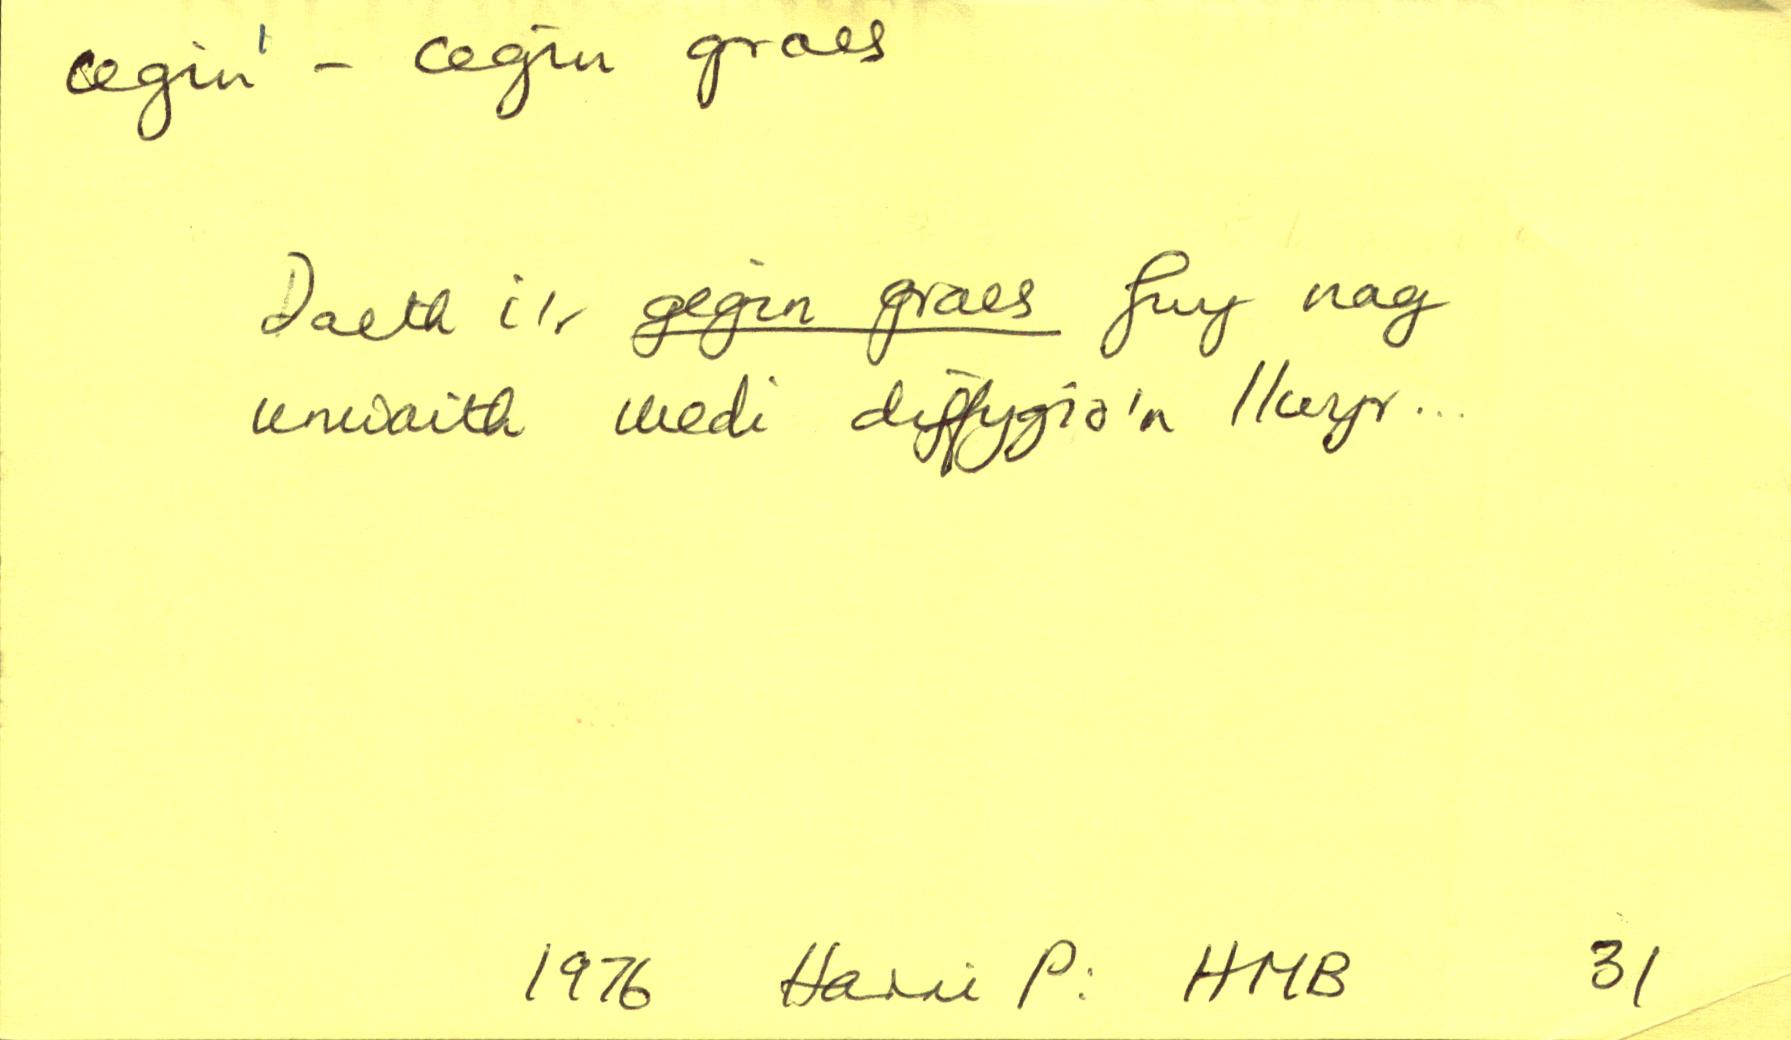 cegin¹ - cegin graes
Daeth i'r gegin graes fwy nag
unwaith wedi diffygio'n llwyr...
1976 Harri P: HMB 31